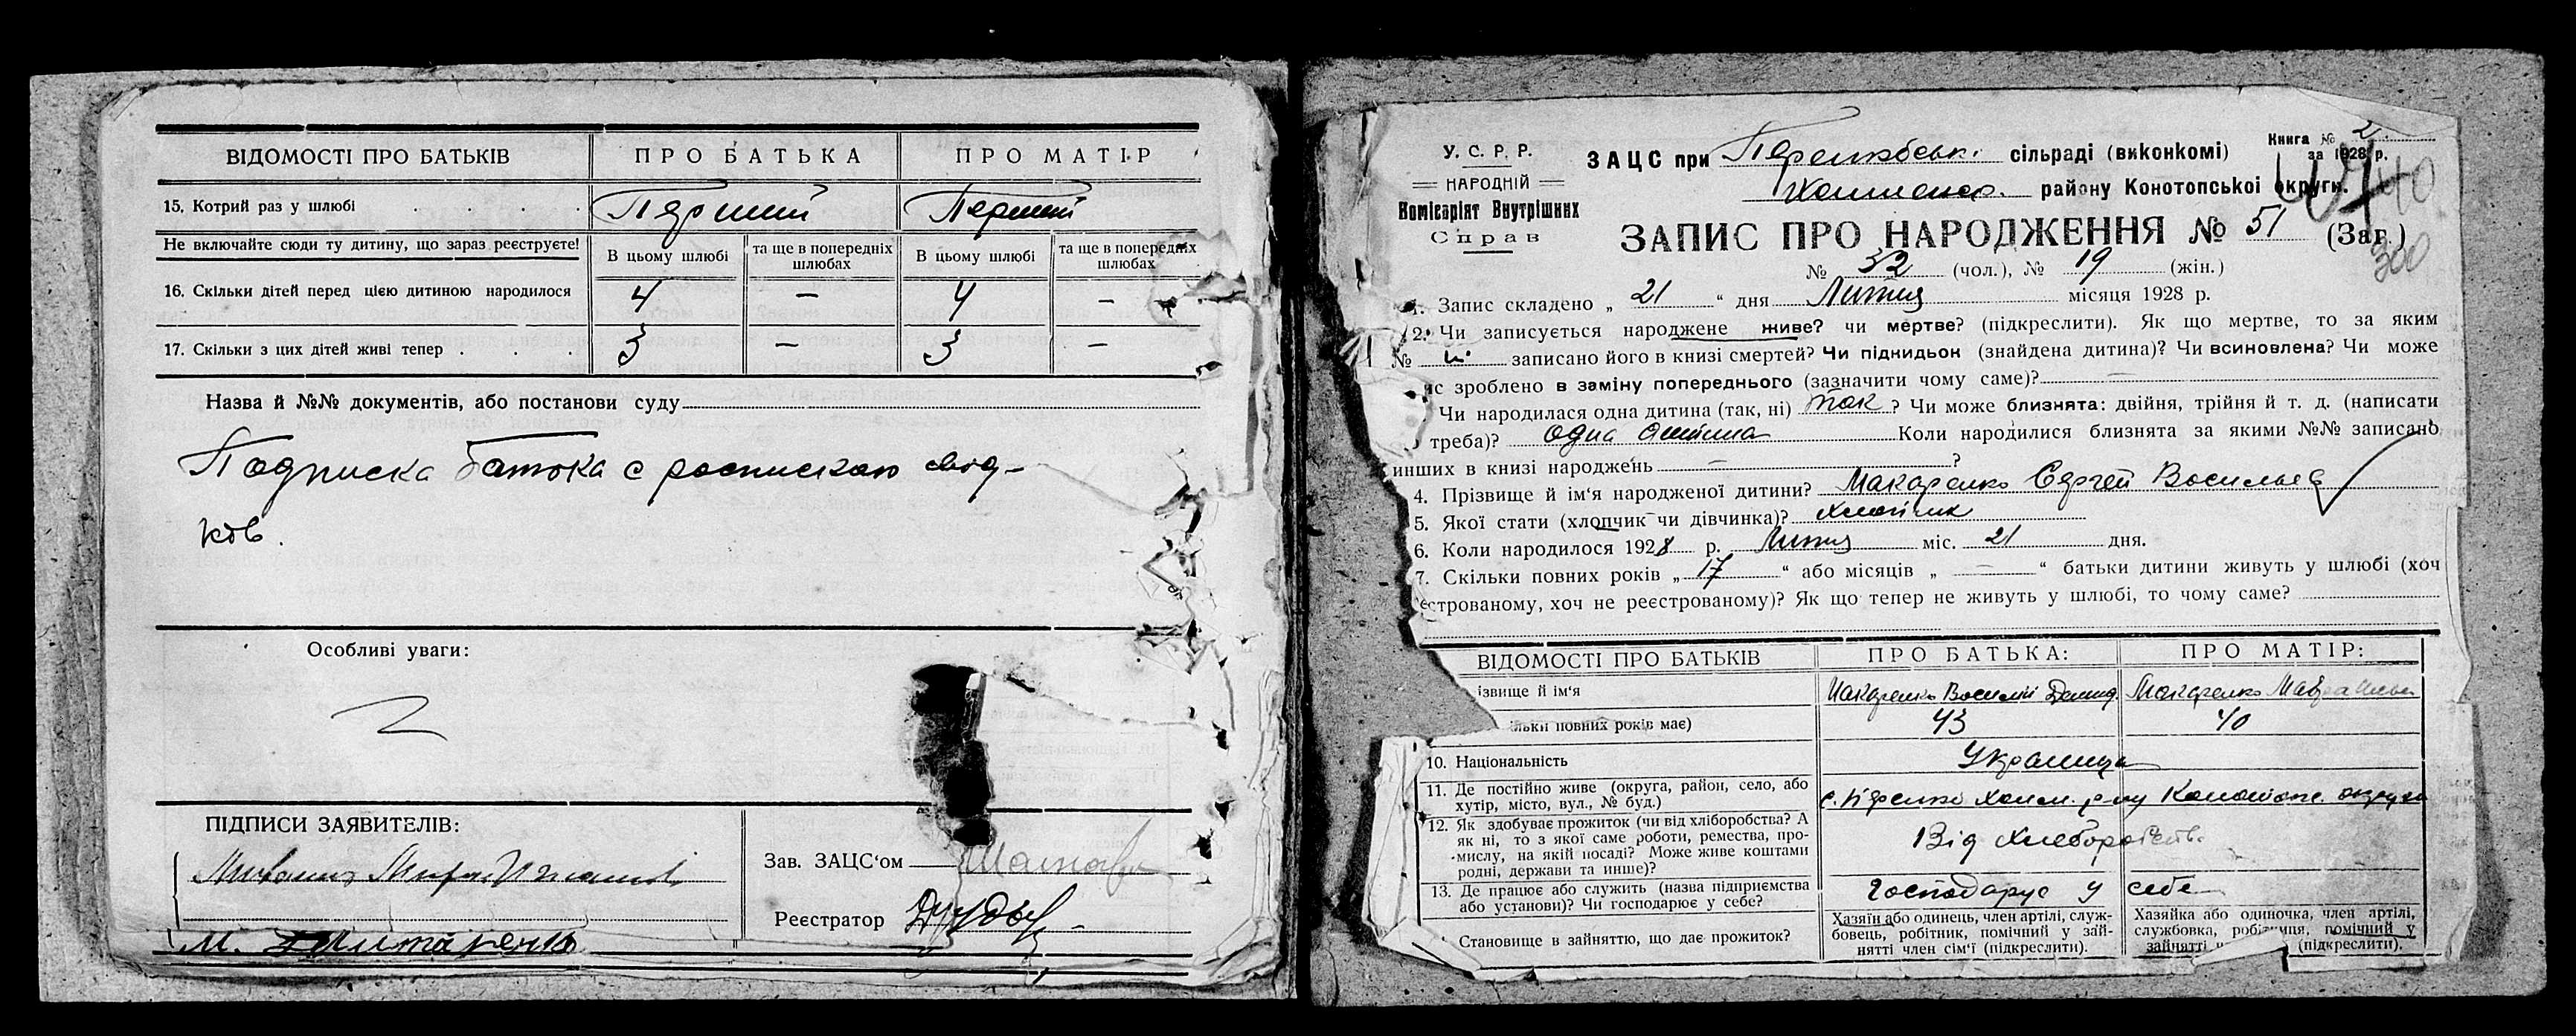 ВІДОМОСТІ ПРО БАТЬКІВ
ПРО БАТЬКА
ПРО МАТІР
15. Котрий раз у шлюбі . . . .
Перший
Перший
Не включайте сюди ту дитину, що зараз реєструєте!
В цьому шлюбі
та ще в попередніх шлюбах
В цьому шлюбі
та ще в попередніх шлюбах
16. Скільки дітей перед цією дитиною народилося
4 — 4 —
17. Скільки з цих дітей живі тепер . . .
3 — 3 —
Назва й №№ документів, або постанови суду
Подписка батька с роспискою свід-
ків.
Особливі уваги:
ПІДПИСИ ЗАЯВИТЕЛІВ:
Зав. ЗАЦС‘ом
Реєстратор
М.
У. С. Р. Р.
НАРОДНІЙ
Комісаріят Внутрішних
Справ
Книга № 2
за 1928 р.
ЗАЦС при сільраді (виконкомі)
району Конотопської округи.
40
300
ЗАПИС ПРО НАРОДЖЕННЯ № 51 (Заг.)
№ 32 (чол.), № 19 (жін.)
1. Запис складено „ 21 “ дня Липня місяця 1928 р.
2. Чи записується народжене живе? чи мертве? (підкреслити). Як що мертве, то за яким
№ записано його в книзі смертей? Чи підкидьок (знайдена дитина)? Чи всиновлена? Чи може
ис зроблено в заміну попереднього (зазначити чому саме)? —
Чи народилася одна дитина (так, ні) так ? Чи може близнята: двійня, трійня й т. д. (написати
треба)? одна дитина Коли народилися близнята за якими №№ записано
инших в книзі народжень — ?
4. Прізвище й ім‘я народженої дитини? Макаренко Сергей Васильев
5. Якої стати (хлопчик чи дівчинка)? хлопчик
6. Коли народилося 1928 р. Липня міс. 21 дня.
7. Скільки повних років „ 17 “ або місяців „ — “ батьки дитини живуть у шлюбі (хоч
єстрованому, хоч не реєстрованому)? Як що тепер не живуть у шлюбі, то чому саме?
ВІДОМОСТІ ПРО БАТЬКІВ
ПРО БАТЬКА:
ПРО МАТІР:
ізвище й ім‘я
Макаренко Василий Демид.
Макаренко Мавра
ільки повних років має)
43
40
10. Національність
Украинци
11. Де постійно живе (округа, район, село, або
хутір, місто, вул., № буд.)
12. Як здобуває прожиток (чи від хліборобства? А
як ні, то з якої саме роботи, ремества, про-
мислу, на якій посаді? Може живе коштами
родні, держави та инше)?
Від хлеборобств.
13. Де працює або служить (назва підприємства
або установи)? Чи господарює у себе?
Господарує у себе
Становище в зайняттю, що дає прожиток?
Хазяїн або одинець, член артілі, служ-
бовець, робітник, помічний у зай-
нятті член сім‘ї (підкреслити).
Хазяйка або одиночка, член артілі,
службовка, робітниця, помічний у
зайнятті (підкреслити).